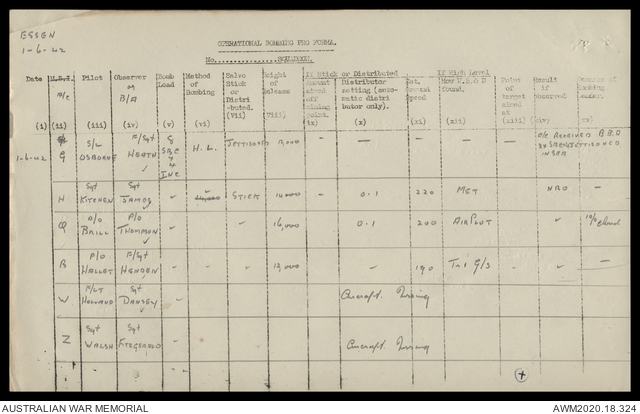 ESSEN
1-6-42
OPERATIONAL BOMBING PRO FORMA.
No. SQUADRON.
Date A/C Pilot Observer or B/A Bomb Load Method of Bombing Salvo Stick or Distri-buted. Height of Release If Stick or Distributed Distributor setting (auto-matic distri butor only). If High Level found. Point of target aimed at Result if observed
(i) (ii) (iii) (iv) (v) (vi) (vii) (viii) (ix) (x) (xi) (xii) (xiii) (xiv) (xv)
1-6-42 G S/L OSBORNE F/Sgt HEATH 8 SBC 4 INC H.L. JETTISONED - - - - - A/C RECEIVED B.B.A JETTISONED IN SEA
H Sgt KITCHEN Sgt JAMES STICK 14,000 - 0.1 220 MET NRO -
Q P/O BRILL P/O THOMPSON 16,000 0.1 200 AIR PLOT 10/10 cloud
R P/O HALLET F/Sgt HENDEN 12,000 - 190 G/S -
W F/LT HOLLAND Sgt DANSEY Aircraft Missing
Z Sgt WALSH Sgt FITZGERALD Aircraft Missing
AUSTRALIAN WAR MEMORIAL
AWM2020.18.324